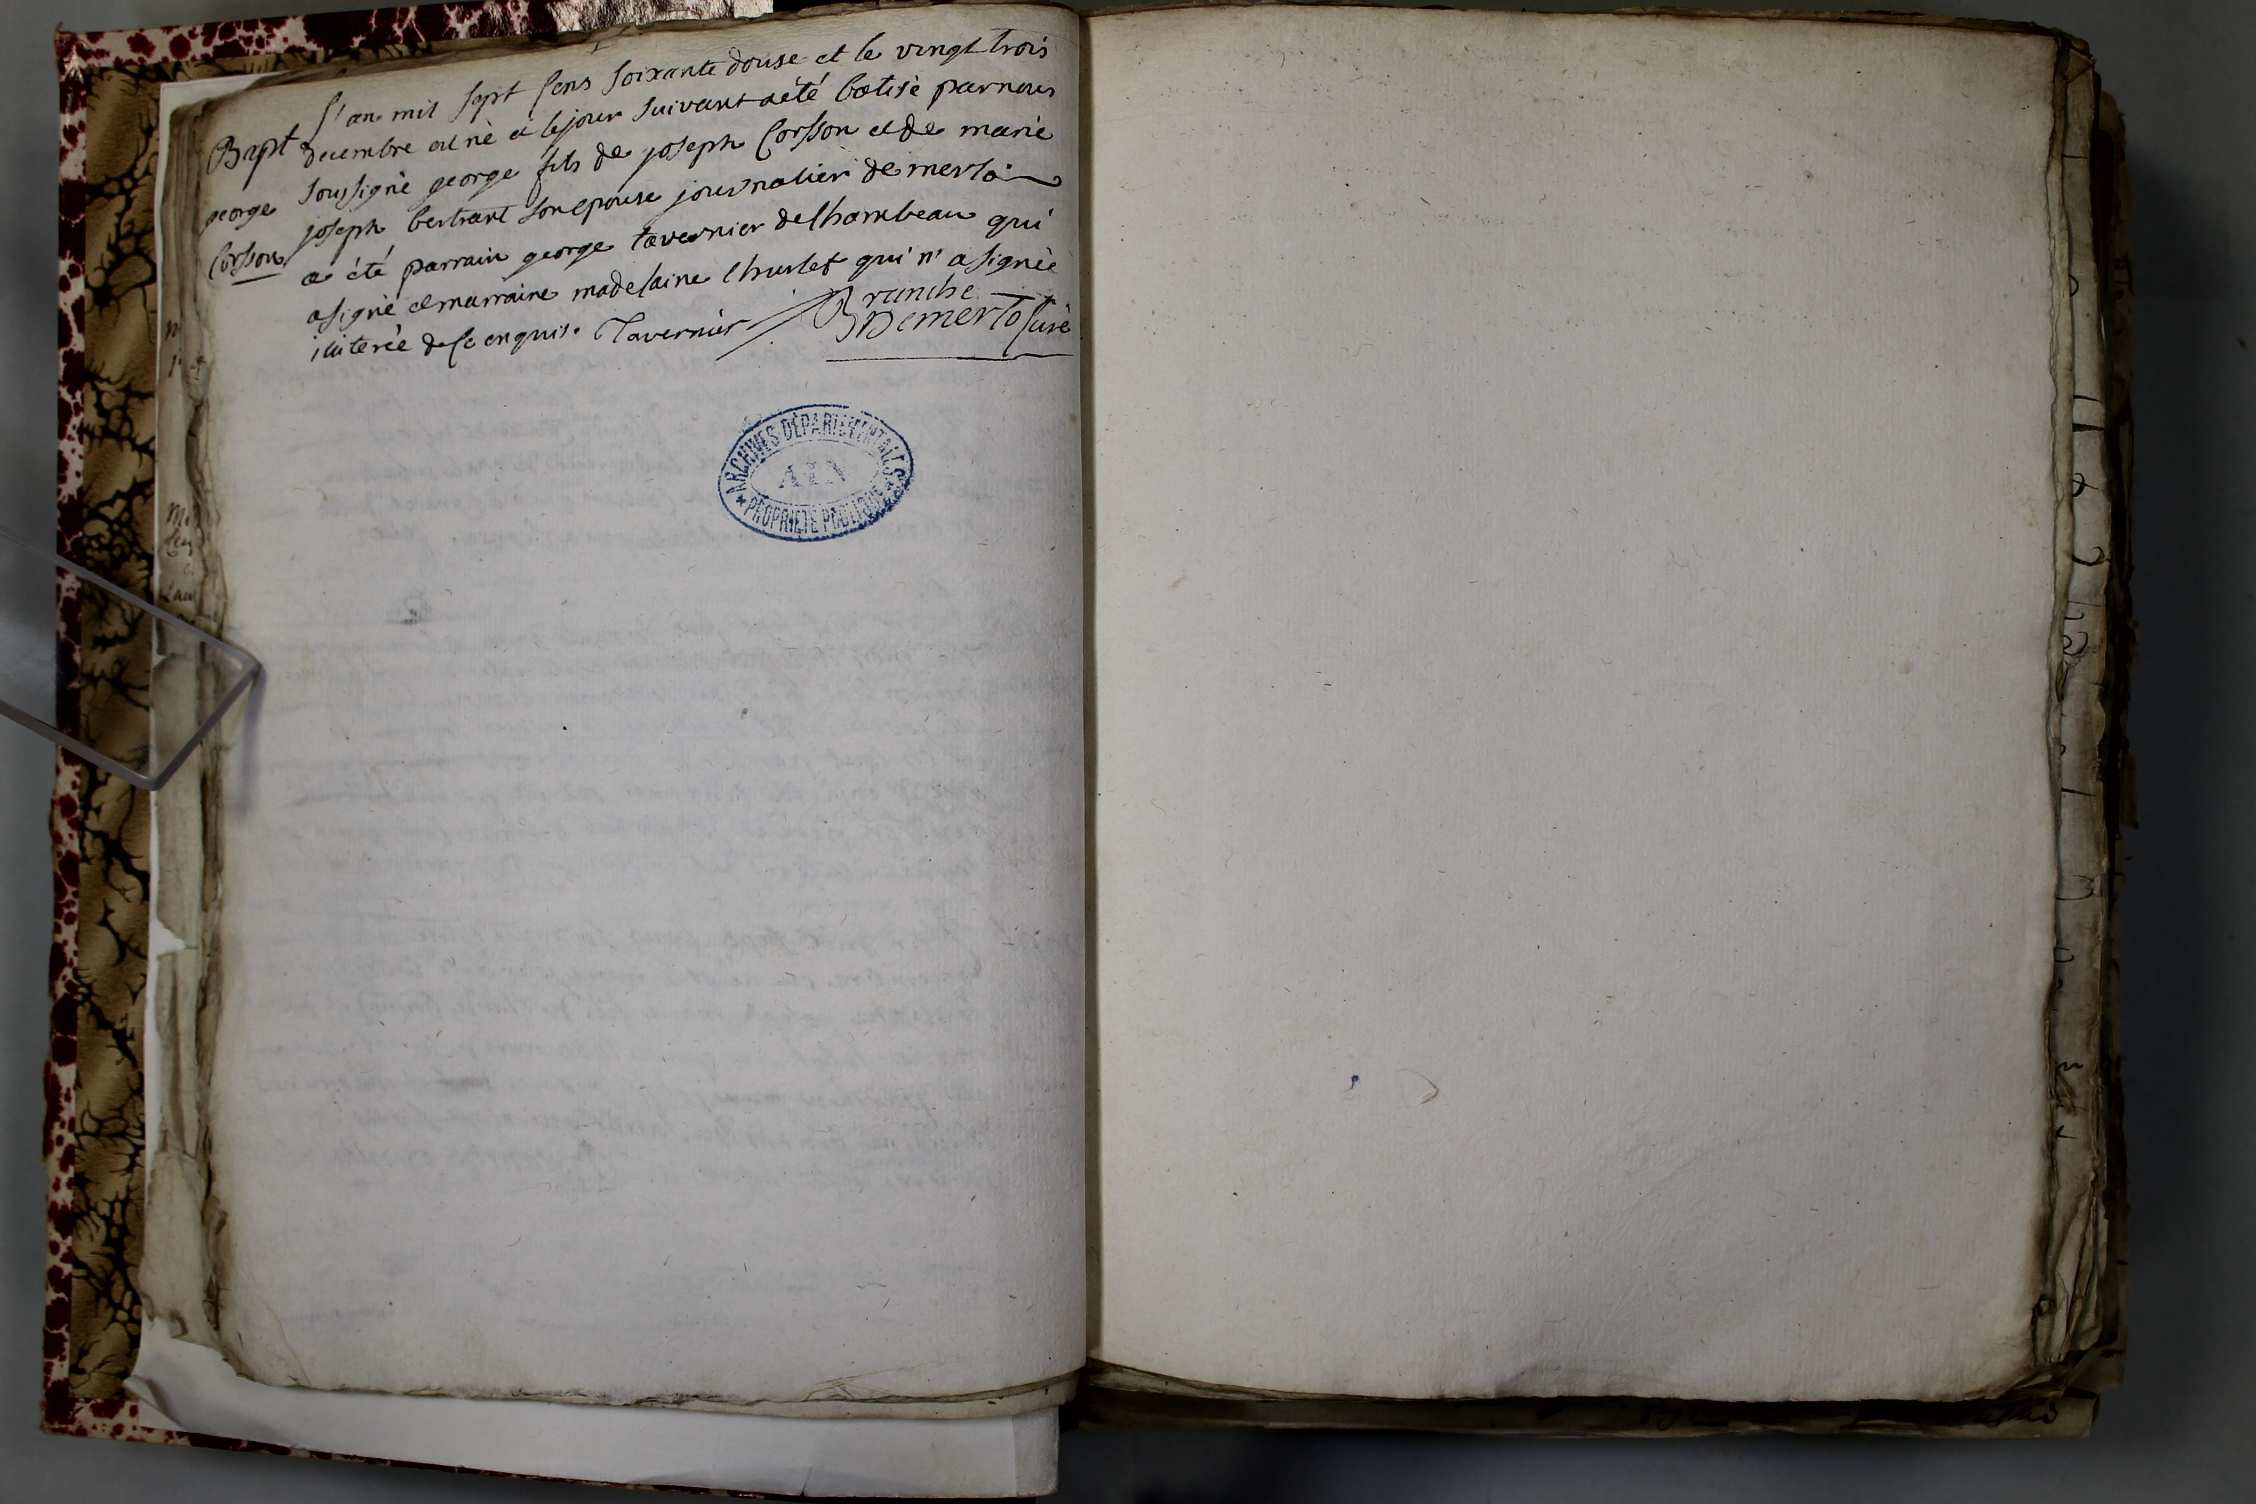 Bapt
george
Corsson
l'an mil sept sens soixante douse et le vingt trois
decembre est né et le jour suivant a été batisé par nous
soussigné george fils de joseph Corsson et de marie
joseph bertrant son epouse journalier de merlo
a été parrain george tavernier de Chambeau qui
a signé et marraine madelaine Chulet qui n'a signée
iliterée de ce enquise Tavernier
ARCHIVES DÉPARTEMENTALES
AIN
PROPRIÉTÉ PUBLIQUE